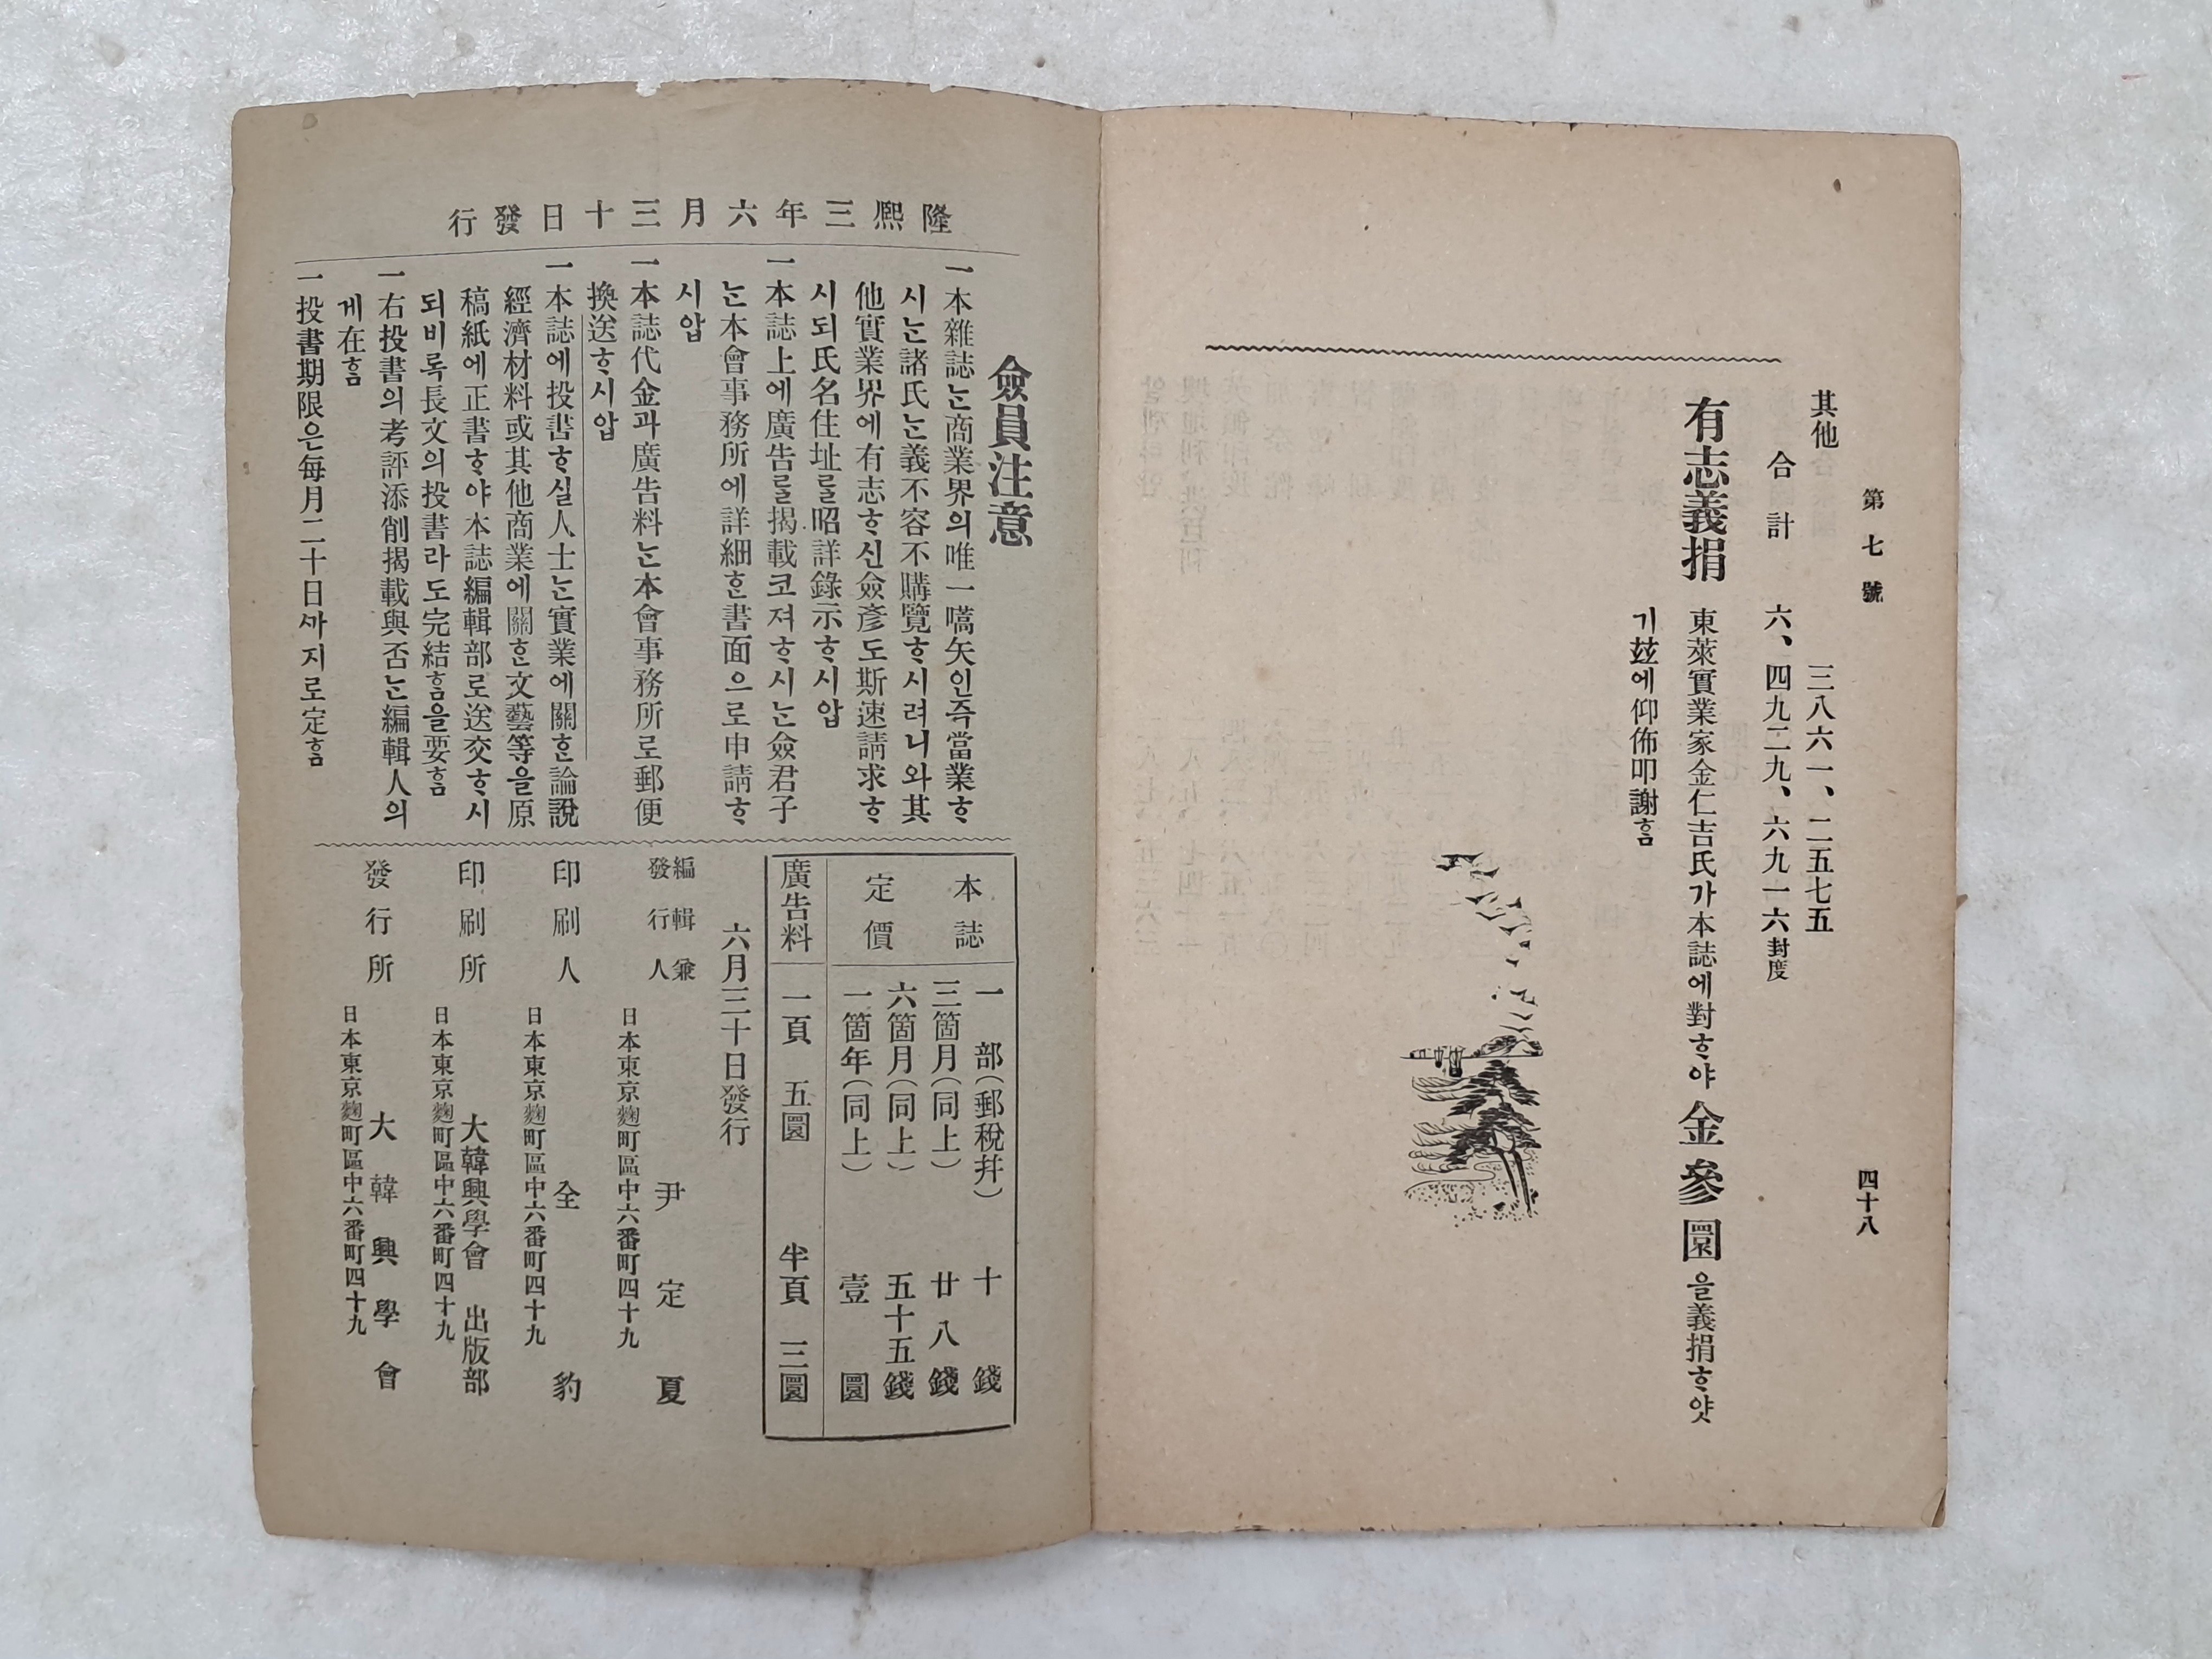 第七號
四十八
其他 三八六一、二五七五
合計 六、四九二九、六九一六封度
有志義捐 東萊實業家金仁吉氏가本誌에對ᄒᆞ야金參圜을義捐ᄒᆞ얏
기玆에仰佈叩謝홈
隆熙三年六月三十日發行
僉員注意
一本雜誌ᄂᆞᆫ商業界의唯一嚆矢인즉當業ᄒᆞ
시ᄂᆞᆫ諸氏ᄂᆞᆫ義不容不購覽ᄒᆞ시려니와其
他實業界에有志ᄒᆞ신僉彦도斯速請求ᄒᆞ
시되氏名住址ᄅᆞᆯ昭詳錄示ᄒᆞ시압
一本誌上에廣告ᄅᆞᆯ揭載코져ᄒᆞ시ᄂᆞᆫ僉君子
ᄂᆞᆫ本會事務所에詳細ᄒᆞᆫ書面으로申請ᄒᆞ
시압
一本誌代金과廣告料ᄂᆞᆫ本會事務所로郵便
換送ᄒᆞ시압
一本誌에投書ᄒᆞ실人士ᄂᆞᆫ實業에關ᄒᆞᆫ論說
經濟材料或其他商業에關ᄒᆞᆫ文藝等을原
稿紙에正書ᄒᆞ야本誌編輯部로送交ᄒᆞ시
되비록長文의投書라도完結ᄒᆞᆷ을要ᄒᆞᆷ
一右投書의考評添削揭載與否ᄂᆞᆫ編輯人의
게在ᄒᆞᆷ
一投書期限은每月二十日ᄭᅡ지로定ᄒᆞᆷ
本誌定價
一部(郵稅幷) 十錢
三箇月(同上) 廿八錢
六箇月(同上) 五十五錢
一箇年(同上) 壹圜
廣告料 一頁 五圜 半頁 三圜
六月三十日發行
編輯兼
發行人 尹定夏
日本東京麴町區中六番町四十九
印刷人 全豹
日本東京麴町區中六番町四十九
印刷所 大韓興學會出版部
日本東京麴町區中六番町四十九
發行所 大韓興學會
日本東京麴町區中六番町四十九